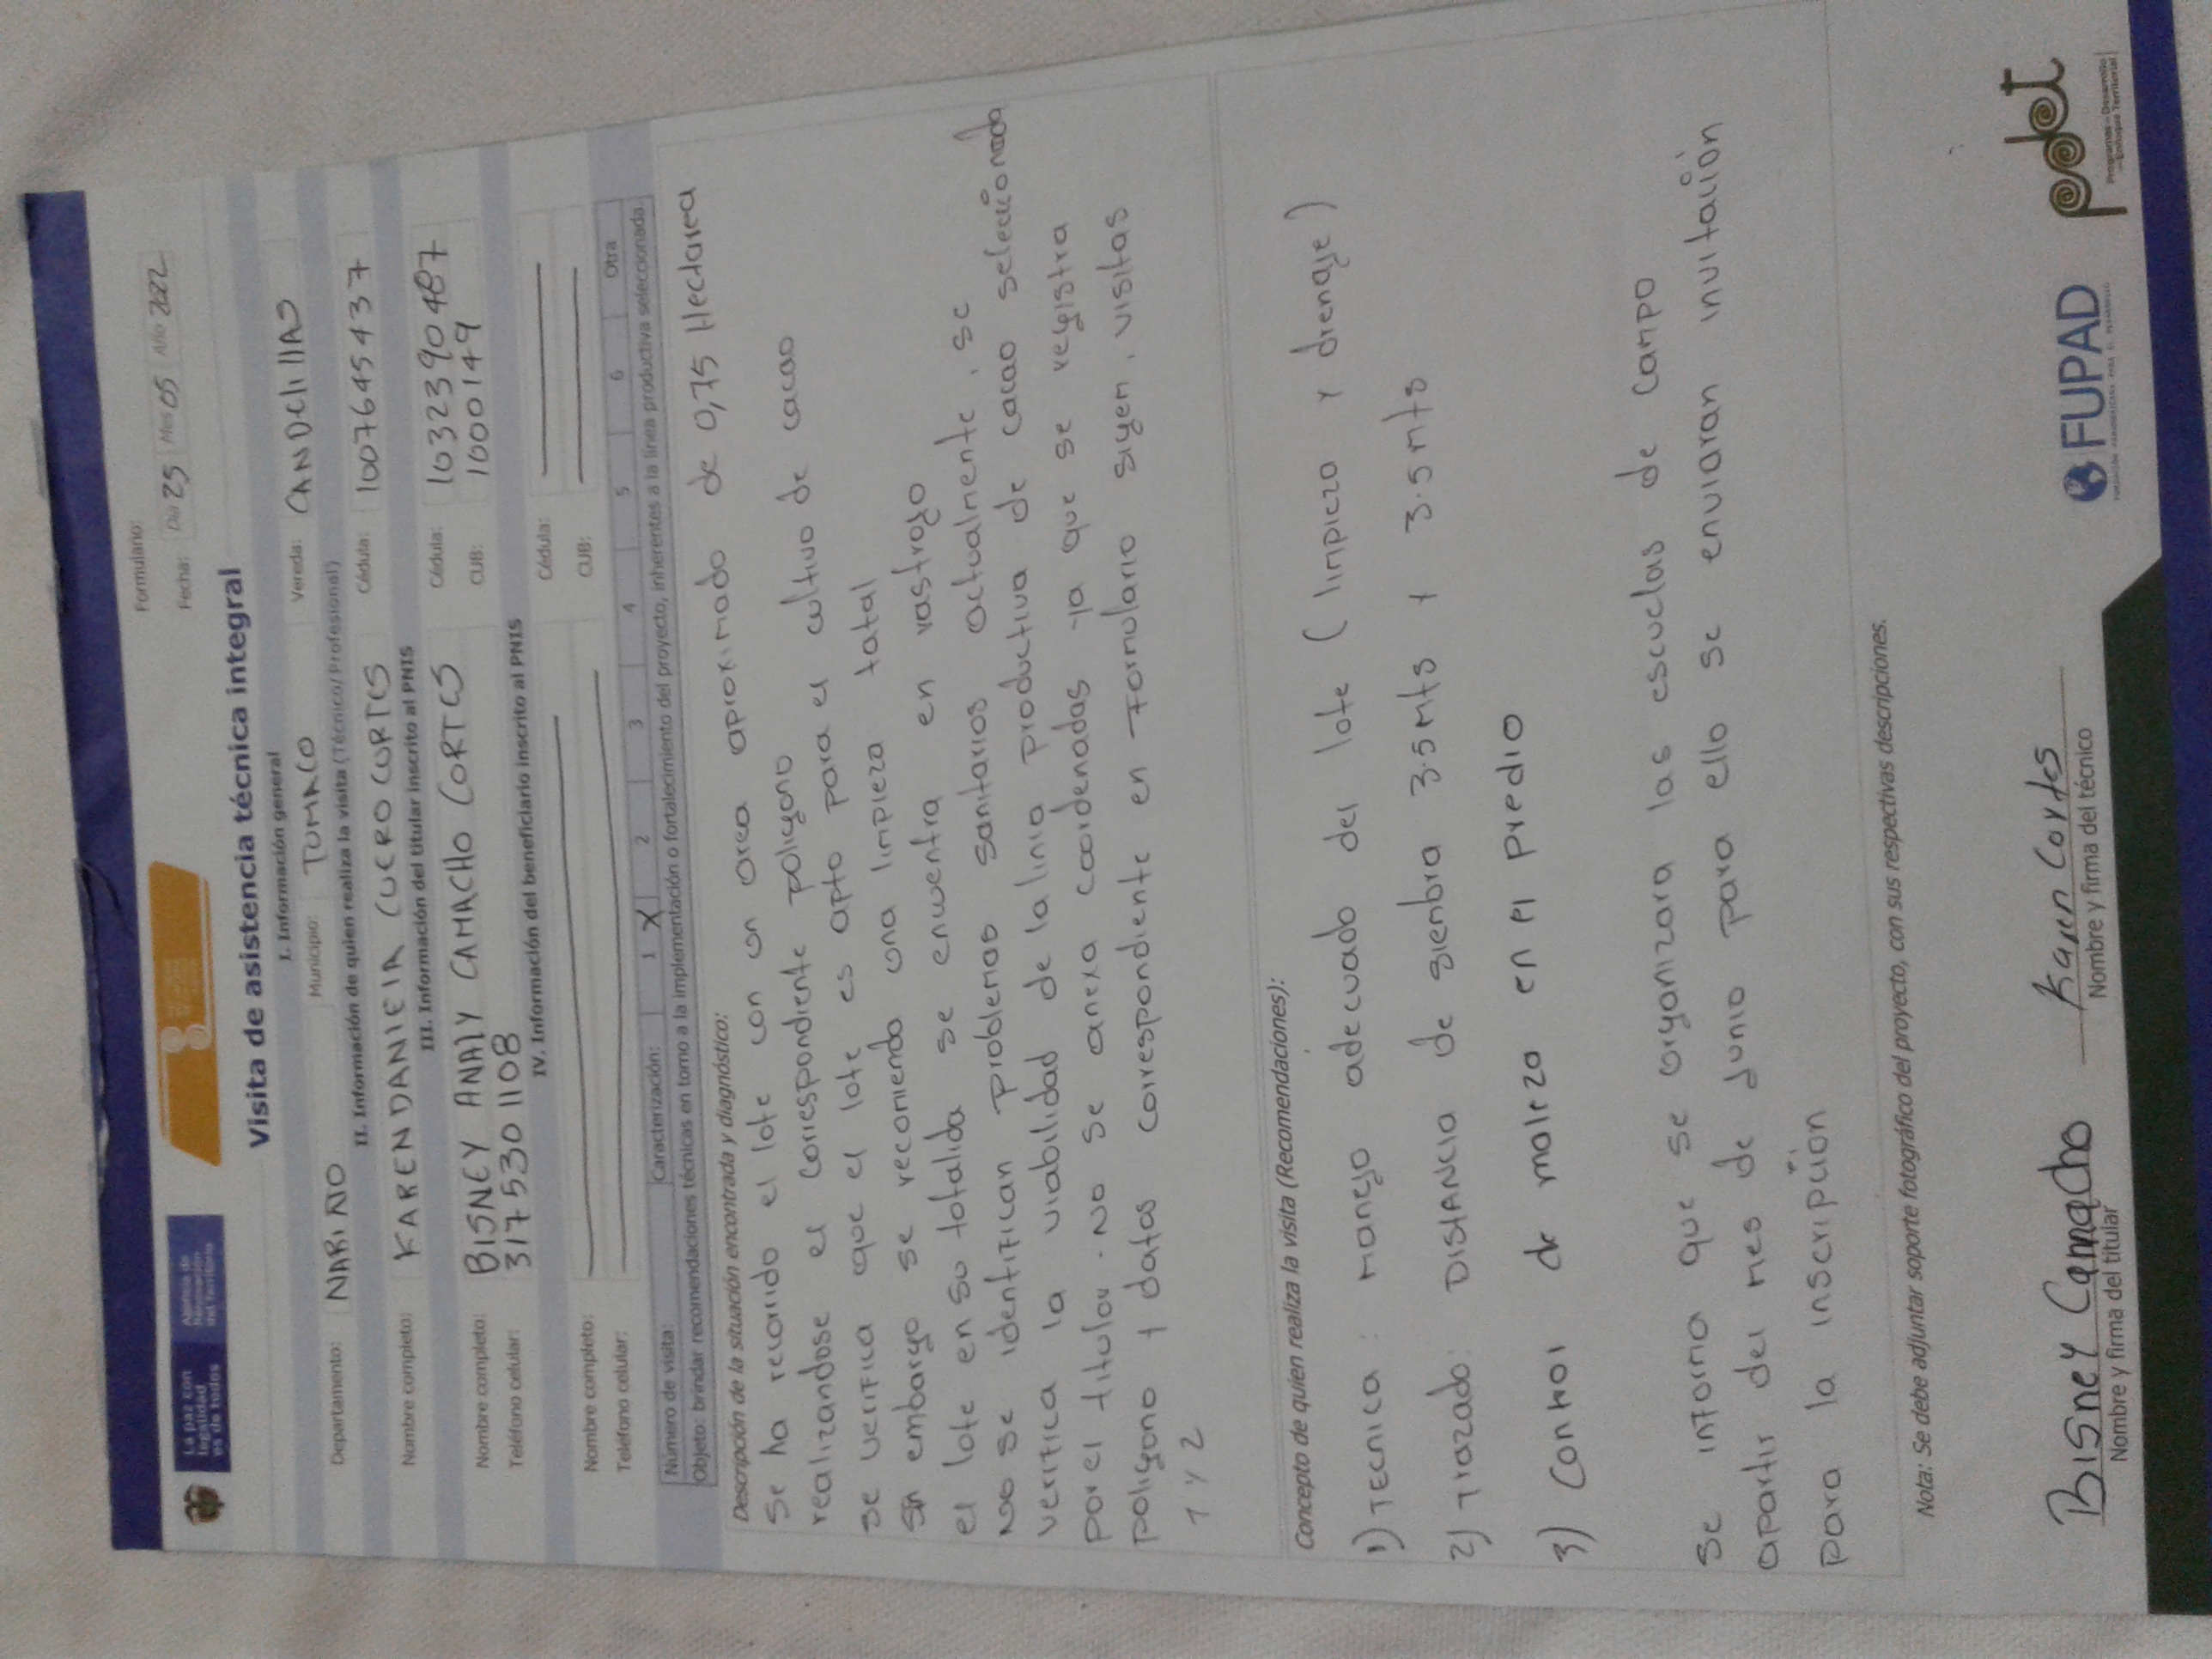 La paz con
legalidad
es de todos
Agencia de
Renovación
del Territorio
Formulario:
Fecha: Día 25 Mes 05 Año 2022
Visita de asistencia técnica integral
I. Información general
Departamento: NARIÑO Municipio: TUMACO Vereda: CANDELILLAS
II. Información de quien realiza la visita (Técnico/Profesional)
Nombre completo: KAREN DANIELA CUERO CORTES Cédula: 1007645437
III. Información del titular inscrito al PNIS
Nombre completo: BISNEY ANALY CAMACHO CORTES Cédula: 1032390487
Teléfono celular: 3175301108 CUB: 1000149
IV. Información del beneficiario inscrito al PNIS
Nombre completo: Cédula:
Teléfono celular: CUB:
Número de visita: Caracterización: 1 X 2 3 4 5 6 Otra
Objeto: brindar recomendaciones técnicas en torno a la implementación o fortalecimiento del proyecto, inherentes a la línea productiva seleccionada.
Descripción de la situación encontrada y diagnóstico:
Se ha recorrido el lote con un area aproximado de 0,75 Hectarea
realizandose el correspondiente poligono
se verifica que el lote es apto para el cultivo de cacao
sin embargo se recomienda una limpieza total
el lote en su totalida se encuentra en rastrojo
No se identifican problemas sanitarios actualmente, se
verifica la viabilidad de la linia productiva de cacao seleccionada
por el titular. No se anexa coordenadas ya que se registra
poligono y datos correspondiente en Formulario sygen, visitas
1 y 2
Concepto de quien realiza la visita (Recomendaciones):
1) Tecnica: Manejo adecuado del lote (limpieza y drenaje)
2) Trazado: Distancia de siembra 3.5 mts x 3.5 mts
3) Control de maleza en el predio
Se informa que se organizara las escuelas de campo
apartir del mes de Junio para ello se enviaran invitación
para la inscripción
Nota: Se debe adjuntar soporte fotográfico del proyecto, con sus respectivas descripciones.
Bisney Camacho Karen Cortes
Nombre y firma del titular Nombre y firma del técnico
FUPAD
FUNDACIÓN PANAMERICANA PARA EL DESARROLLO
pdet
Programas de Desarrollo
con Enfoque Territorial